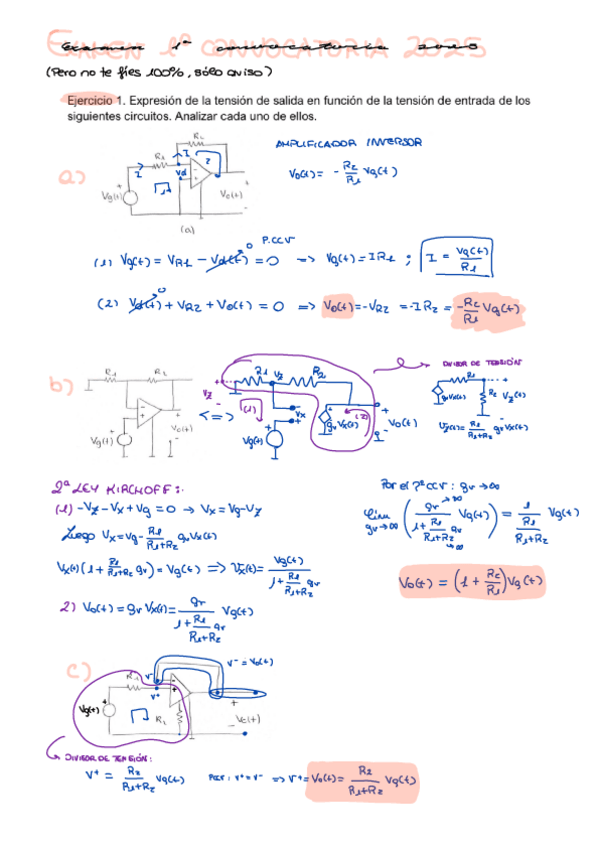 EXAMEN 1ª CONVOCATORIA 2025
(Pero no te fíes 100%, sólo aviso)
Ejercicio 1. Expresión de la tensión de salida en función de la tensión de entrada de los
siguientes circuitos. Analizar cada uno de ellos.
a)
R1
R2
I
I
I
Vd
Vg(t)
Vo(t)
(a)
AMPLIFICADOR INVERSOR
Vo(t) = - R2/R1 Vg(t)
P.CCV
(1) Vg(t) = VR1 - Vd(t) = 0 => Vg(t) = IR1 ; I = Vg(t)/R1
(2) Vd(t) + VR2 + Vo(t) = 0 => Vo(t) = -VR2 = -IR2 = -R2/R1 Vg(t)
b)
R1
R2
Vg(t)
Vo(t)
<=>
R1
Vz
R2
Vz
(1)
Vx
Vg(t)
gv Vx(t)
(2)
Vo(t)
DIVISOR DE TENSIÓN
R2
gvVx(t)
R1
Vz(t)
Vz(t) = R1/R1+R2 gvVx(t)
2ª LEY KIRCHOFF:
(1) -Vz - Vx + Vg = 0 → Vx = Vg - Vz
Luego Vx = Vg - R1/R1+R2 gvVx(t)
Vx(t)(1 + R1/R1+R2 gv) = Vg(t) => Vx(t) = Vg(t)/1 + R1/R1+R2 gv
2) Vo(t) = gv Vx(t) = gv/1 + R1/R1+R2 gv Vg(t)
Por el Pº CCV: gv → ∞
Lim gv→∞ (gv/1 + R1/R1+R2 gv Vg(t)) = 1/R1/R1+R2 Vg(t)
Vo(t) = (1 + R2/R1) Vg(t)
c)
R1
V⁻
V⁺
V⁻ = Vo(t)
Vg(t)
R2
Vo(t)
DIVISOR DE TENSIÓN:
V⁺ = R2/R1+R2 Vg(t) PCCV: V⁺ = V⁻ => V⁺ = Vo(t) = R2/R1+R2 Vg(t)